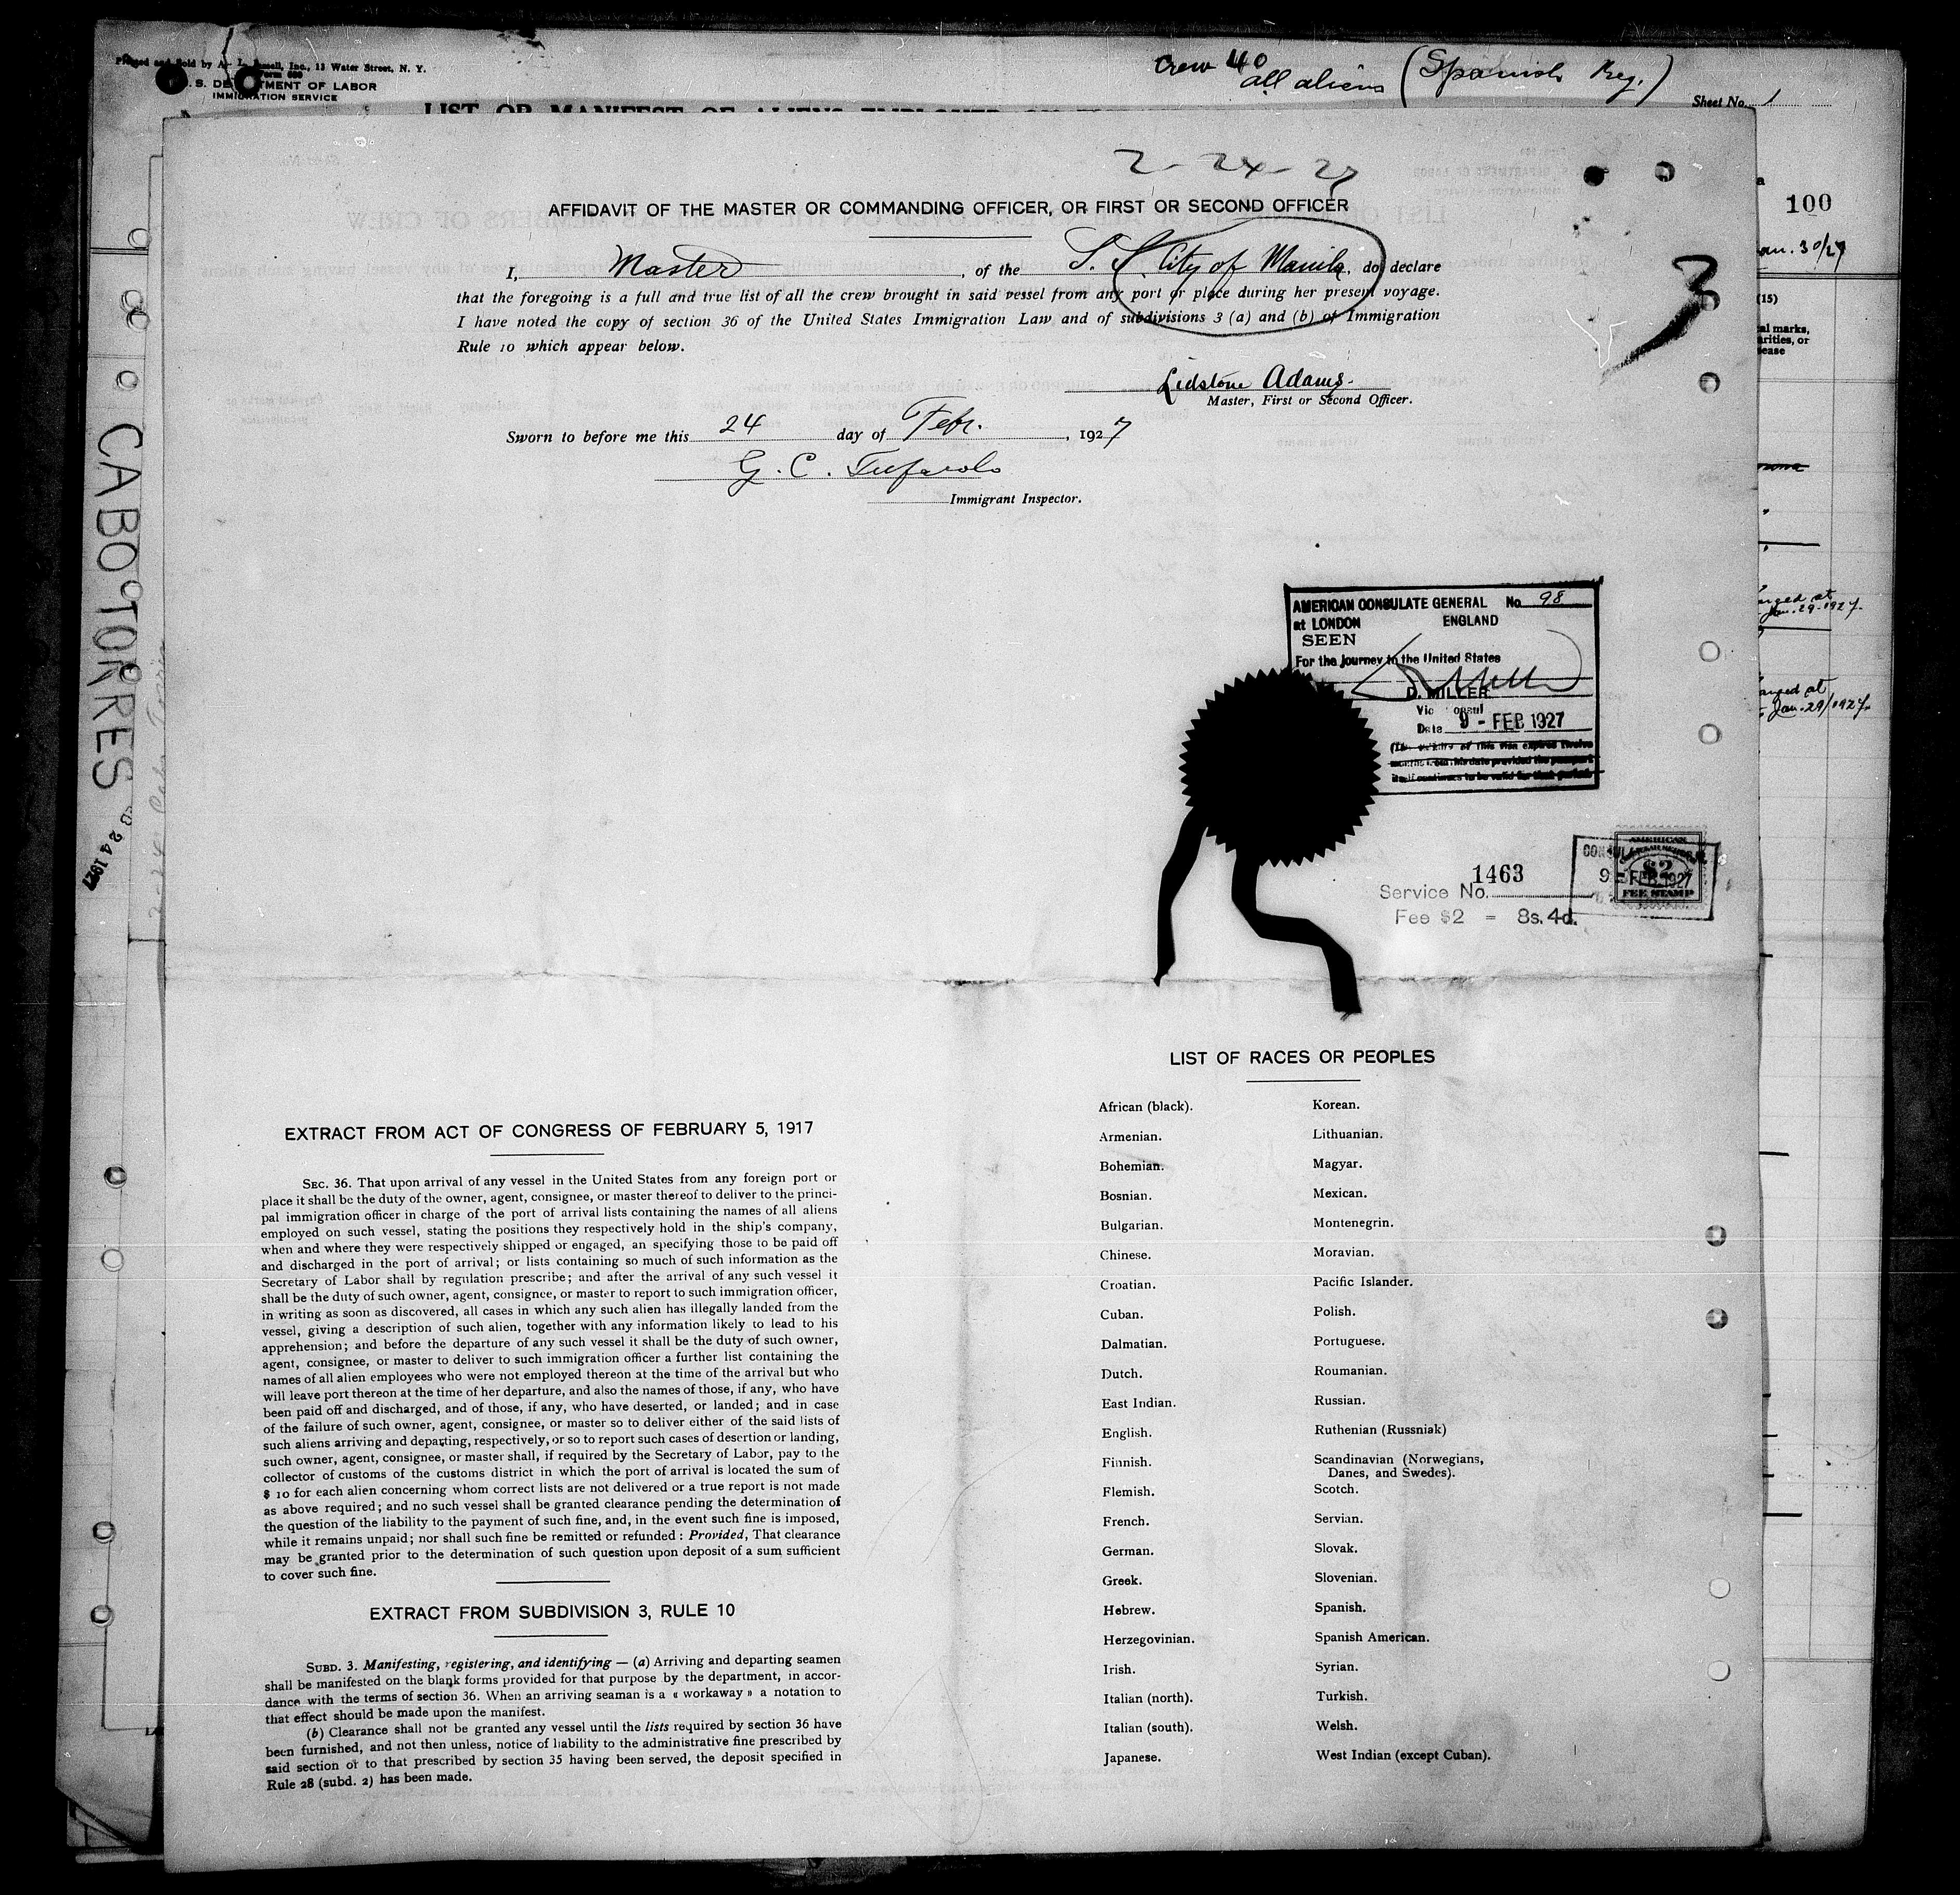 Printed and Sold by A. L. Russell, Inc., 11 Water Street, N. Y.
Form 680
U. S. DEPARTMENT OF LABOR
IMMIGRATION SERVICE
Crew 40
all aliens (Spanish Reg.)
Sheet No. 1
LIST OR MANIFEST OF ALIENS EMPLOYED ON
100
Jan. 30/27
(15)
2-24-27
AFFIDAVIT OF THE MASTER OR COMMANDING OFFICER, OR FIRST OR SECOND OFFICER
I, Master, of the S. S. City of Manila, do declare
that the foregoing is a full and true list of all the crew brought in said vessel from any port or place during her present voyage.
I have noted the copy of section 36 of the United States Immigration Law and of subdivisions 3 (a) and (b) of Immigration
Rule 10 which appear below.
3
Lidstone Adams.
Master, First or Second Officer.
Sworn to before me this 24 day of Febr., 1927
G. C. Tufarolo
Immigrant Inspector.
CABO TORRES
FEB 24 1927
at
Jan. 29-1927.
at
Jan. 29/1927.
AMERICAN CONSULATE GENERAL No. 98
at LONDON ENGLAND
SEEN
For the journey to the United States
D. MILLER
Vice Consul
Date 9 - FEB 1927
(The validity of this visa expires twelve
months from this date provided the passport
itself continues to be valid for that period.
AMERICAN
$2
FEE STAMP
9 - FEB 1927
Service No. 1463
Fee $2 = 8s. 4d.
EXTRACT FROM ACT OF CONGRESS OF FEBRUARY 5, 1917
SEC. 36. That upon arrival of any vessel in the United States from any foreign port or
place it shall be the duty of the owner, agent, consignee, or master thereof to deliver to the princi-
pal immigration officer in charge of the port of arrival lists containing the names of all aliens
employed on such vessel, stating the positions they respectively hold in the ship's company,
when and where they were respectively shipped or engaged, an specifying those to be paid off
and discharged in the port of arrival; or lists containing so much of such information as the
Secretary of Labor shall by regulation prescribe; and after the arrival of any such vessel it
shall be the duty of such owner, agent, consignee, or master to report to such immigration officer,
in writing as soon as discovered, all cases in which any such alien has illegally landed from the
vessel, giving a description of such alien, together with any information likely to lead to his
apprehension; and before the departure of any such vessel it shall be the duty of such owner,
agent, consignee, or master to deliver to such immigration officer a further list containing the
names of all alien employees who were not employed thereon at the time of the arrival but who
will leave port thereon at the time of her departure, and also the names of those, if any, who have
been paid off and discharged, and of those, if any, who have deserted, or landed; and in case
of the failure of such owner, agent, consignee, or master so to deliver either of the said lists of
such aliens arriving and departing, respectively, or so to report such cases of desertion or landing,
such owner, agent, consignee, or master shall, if required by the Secretary of Labor, pay to the
collector of customs of the customs district in which the port of arrival is located the sum of
$ 10 for each alien concerning whom correct lists are not delivered or a true report is not made
as above required; and no such vessel shall be granted clearance pending the determination of
the question of the liability to the payment of such fine, and, in the event such fine is imposed,
while it remains unpaid; nor shall such fine be remitted or refunded : Provided, That clearance
may be granted prior to the determination of such question upon deposit of a sum sufficient
to cover such fine.
EXTRACT FROM SUBDIVISION 3, RULE 10
SUBD. 3. Manifesting, registering, and identifying — (a) Arriving and departing seamen
shall be manifested on the blank forms provided for that purpose by the department, in accor-
dance with the terms of section 36. When an arriving seaman is a « workaway » a notation to
that effect should be made upon the manifest.
(b) Clearance shall not be granted any vessel until the lists required by section 36 have
been furnished, and not then unless, notice of liability to the administrative fine prescribed by
said section or to that prescribed by section 35 having been served, the deposit specified in
Rule 28 (subd. 2) has been made.
LIST OF RACES OR PEOPLES
African (black).
Armenian.
Bohemian.
Bosnian.
Bulgarian.
Chinese.
Croatian.
Cuban.
Dalmatian.
Dutch.
East Indian.
English.
Finnish.
Flemish.
French.
German.
Greek.
Hebrew.
Herzegovinian.
Irish.
Italian (north).
Italian (south).
Japanese.
Korean.
Lithuanian.
Magyar.
Mexican.
Montenegrin.
Moravian.
Pacific Islander.
Polish.
Portuguese.
Roumanian.
Russian.
Ruthenian (Russniak)
Scandinavian (Norwegians,
Danes, and Swedes).
Scotch.
Servian.
Slovak.
Slovenian.
Spanish.
Spanish American.
Syrian.
Turkish.
Welsh.
West Indian (except Cuban).